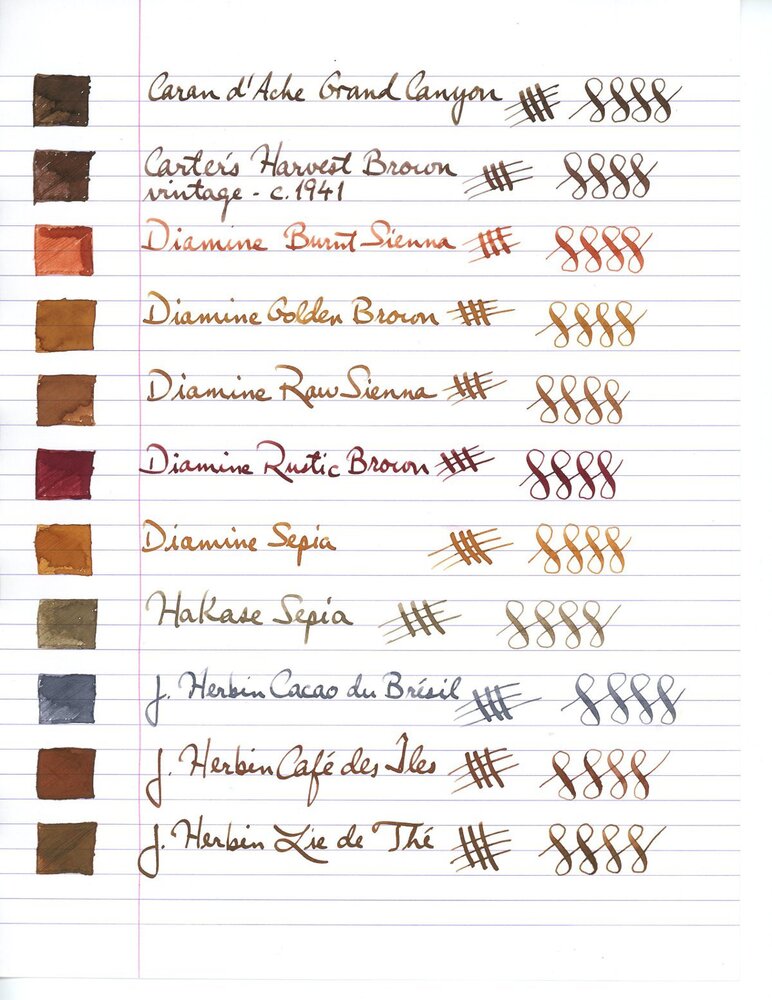 Caran d'Ache Grand Canyon
Carter's Harvest Brown
vintage - c.1941
Diamine Burnt Sienna
Diamine Golden Brown
Diamine Raw Sienna
Diamine Rustic Brown
Diamine Sepia
Hakase Sepia
J. Herbin Cacao du Brésil
J. Herbin Café des Îles
J. Herbin Lie de Thé